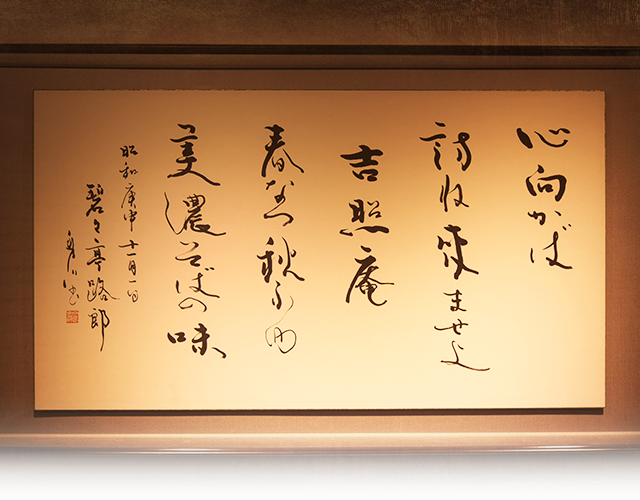 心向かば
訪ね来ませよ
吉照庵
春なつ秋ふゆ
美濃そばの味
昭和庚申十一月一日
碧々亭路郎